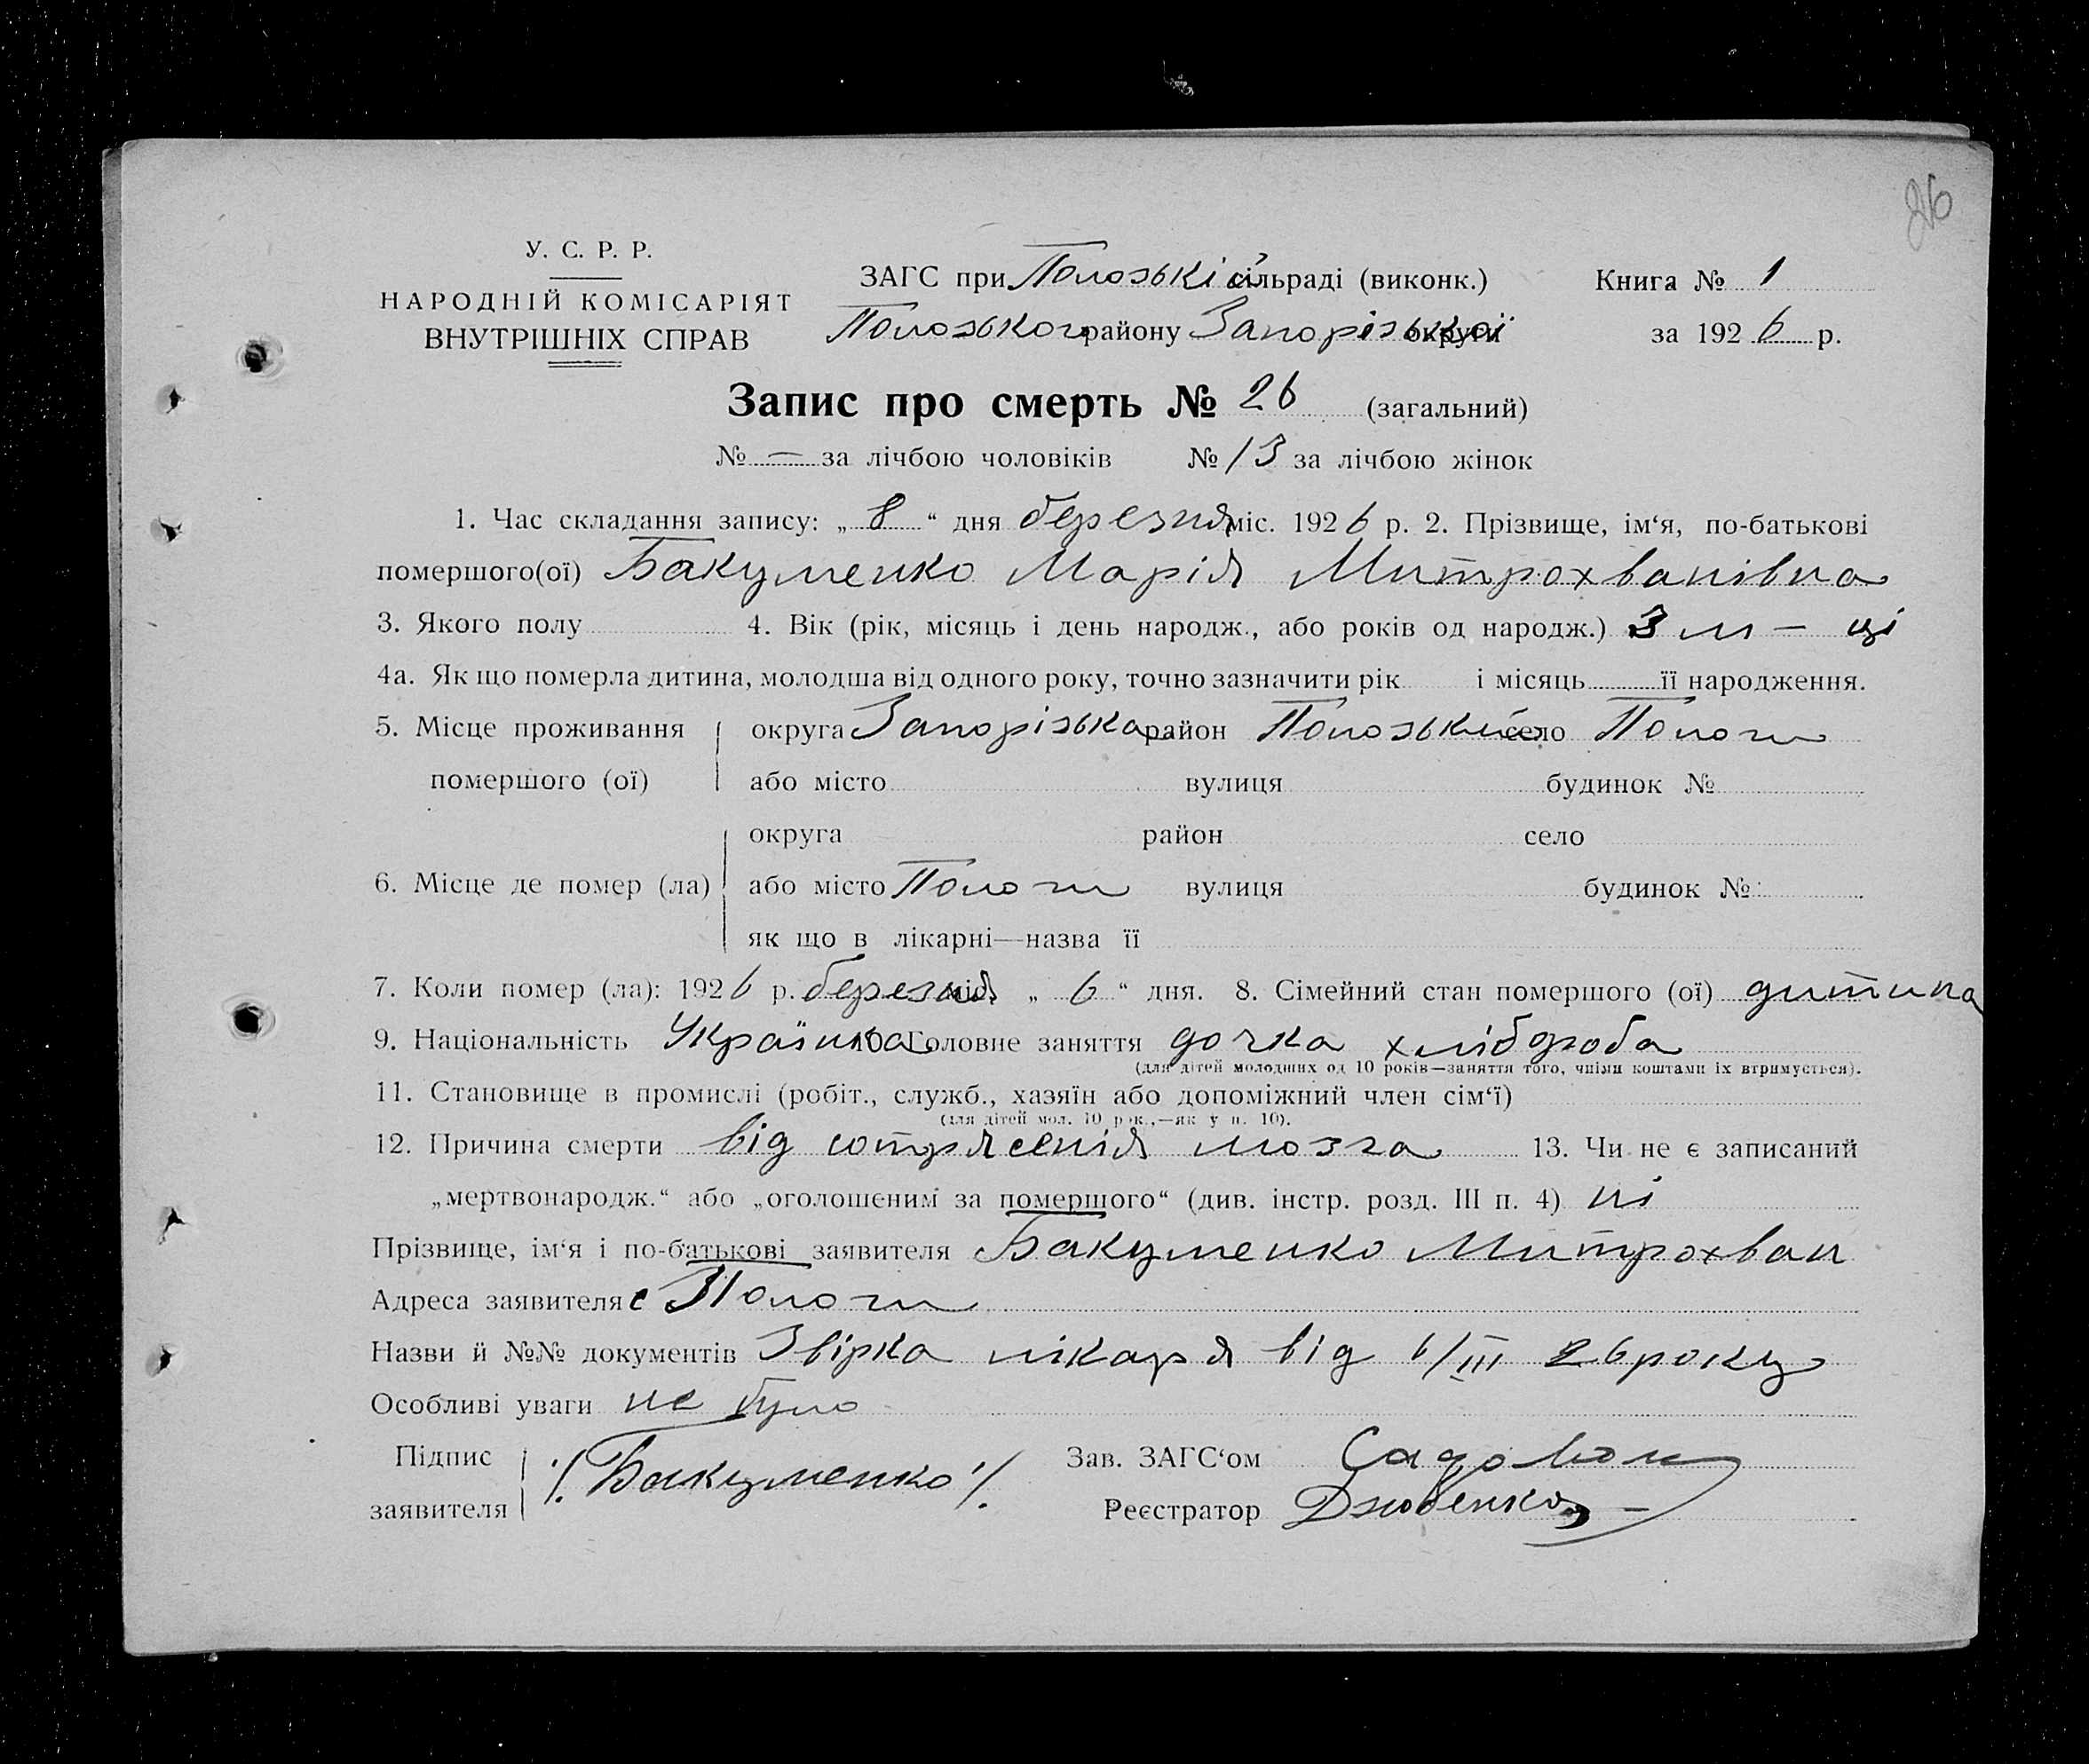 26
У. С. Р. Р.
НАРОДНІЙ КОМІСАРІЯТ
ВНУТРІШНІХ СПРАВ
ЗАГС при Пологські сільраді (виконк.)
Пологського району Запорізької округи
Книга № 1
за 1926 р.
Запис про смерть № 26 (загальний)
№ — за лічбою чоловіків № 13 за лічбою жінок
1. Час складання запису: „ 8 “ дня березня міс. 1926 р. 2. Прізвище, ім‘я, по-батькові
помершого(ої) Бакуменко Марія Митрохванівна
3. Якого полу 4. Вік (рік, місяць і день народж., або років од народж.) 3 м – ці
4а. Як що померла дитина, молодша від одного року, точно зазначити рік і місяць її народження.
5. Місце проживання округа Запорізька район Положський село Пологи
помершого (ої) або місто вулиця будинок №
округа район село
6. Місце де помер (ла) або місто Пологи вулиця будинок №
як що в лікарні—назва її
7. Коли помер (ла): 1926 р. березня міс. „ 6 “ дня. 8. Сімейний стан помершого (ої) дитина
9. Національність Українка 10. Головне заняття дочка хлібороба
(для дітей молодших од 10 років—заняття того, чиїми коштами їх втримується).
11. Становище в промислі (робіт., служб., хазяїн або допоміжний член сім‘ї)
(для дітей мол. 10 рок.,—як у п. 10).
12. Причина смерти від сотрясенія мозга 13. Чи не є записаний
„мертвонародж.“ або „оголошеним за помершого“ (див. інстр. розд. III п. 4) ні
Прізвище, ім‘я і по-батькові заявителя Бакуменко Митрохван
Адреса заявителя с Пологи
Назви й №№ документів Звірка лікаря від 6/III 26 року
Особливі уваги не було
Підпис заявителя /. Бакуменко /.
Зав. ЗАГС‘ом
Реєстратор Дзюбенко